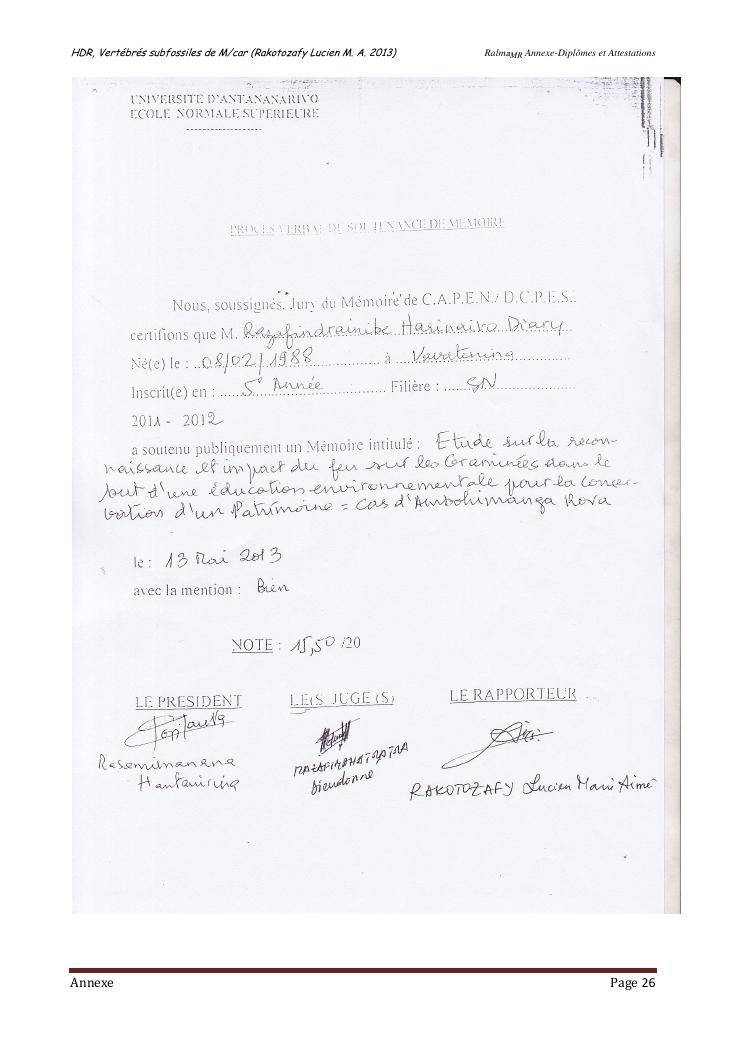 HDR, Vertébrés subfossiles de M/car (Rakotozafy Lucien M. A. 2013) RalmaMR Annexe-Diplômes et Attestations
UNIVERSITE D'ANTANANARIVO
ECOLE NORMALE SUPERIEURE
--------------------
PROCES VERBAL DE SOUTENANCE DE MEMOIRE
Nous, soussignés, Jury du Mémoire de C.A.P.E.N./ D.C.P.E.S..
certifions que M. Razafindrainibe Harinaivo Diary
Né(e) le : 08/02/1988 à Vavatenina
Inscrit(e) en : 5e Année Filière : SN
2011 - 2012
a soutenu publiquement un Mémoire intitulé : Etude sur la recon-
naissance et impact du feu sur les Graminées dans le
but d'une éducation environnementale pour la conser-
vation d'un Patrimoine = cas d'Ambohimanga Rova
le : 13 Mai 2013
avec la mention : Bien
NOTE : 15,50 /20
LE PRESIDENT LE(S JUGE (S) LE RAPPORTEUR
Rasemimanana Dieudonné RAKOTOZAFY Lucien Marie Aimé
Hantanirina
Annexe Page 26